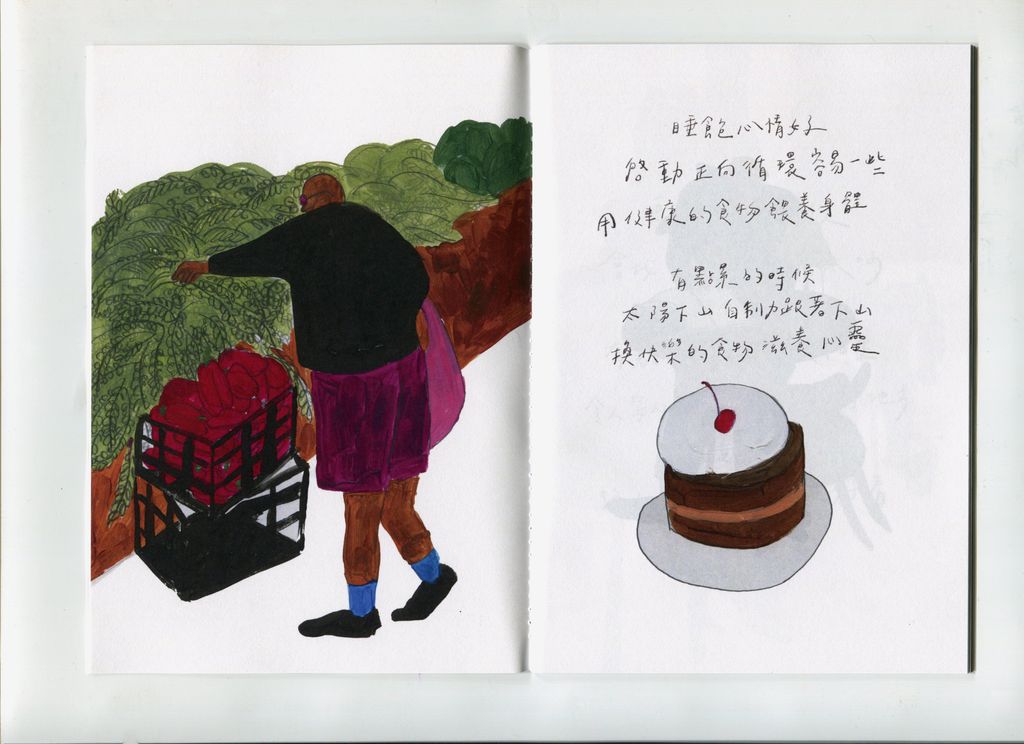 睡飽心情好
啓動正向循環容易一些
用健康的食物餵養身體
有點累的時候
太陽下山自制力跟著下山
換快樂的食物滋養心靈